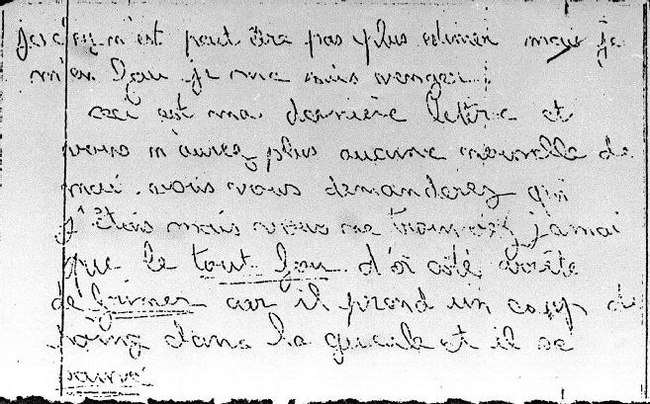 n'est peut être pas plus estimer mais je
m'en fou je me suis venger.
ceci est ma dernière lettre et
vous n'aurez plus aucune nouvelle de
moi. vous vous demanderez qui
j'étais mais vous ne jamai
que le tout fou d'a coté
de frimer car il prend un coup de
poing dans la gueule et il se
sauve